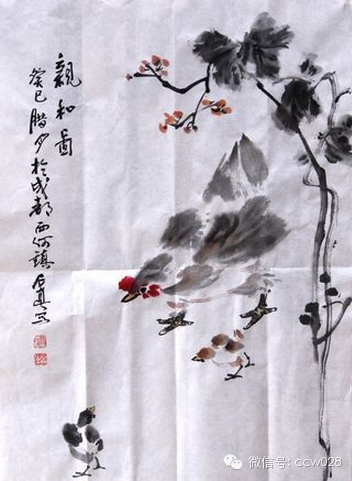 親和圖
癸巳腊月於成都西河鎮石真写
微信号: ccw028